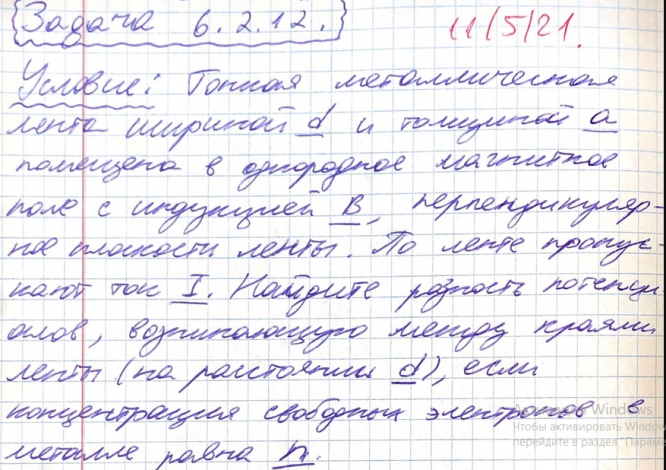 Задача 6.2.12.
11/5/21.
Условие: Тонкая металлическая
лента шириной d и толщиной a
помещена в однородное магнитное
поле с индукцией B, перпендикуляр-
ное плоскости ленты. По ленте пропус-
кают ток I. Найдите разность потенци-
алов, возникающую между краями
ленты (на расстоянии d), если
концентрация свободных электронов в
металле равна n.
Windows
Чтобы активировать Window
перейдите в раздел "Парам